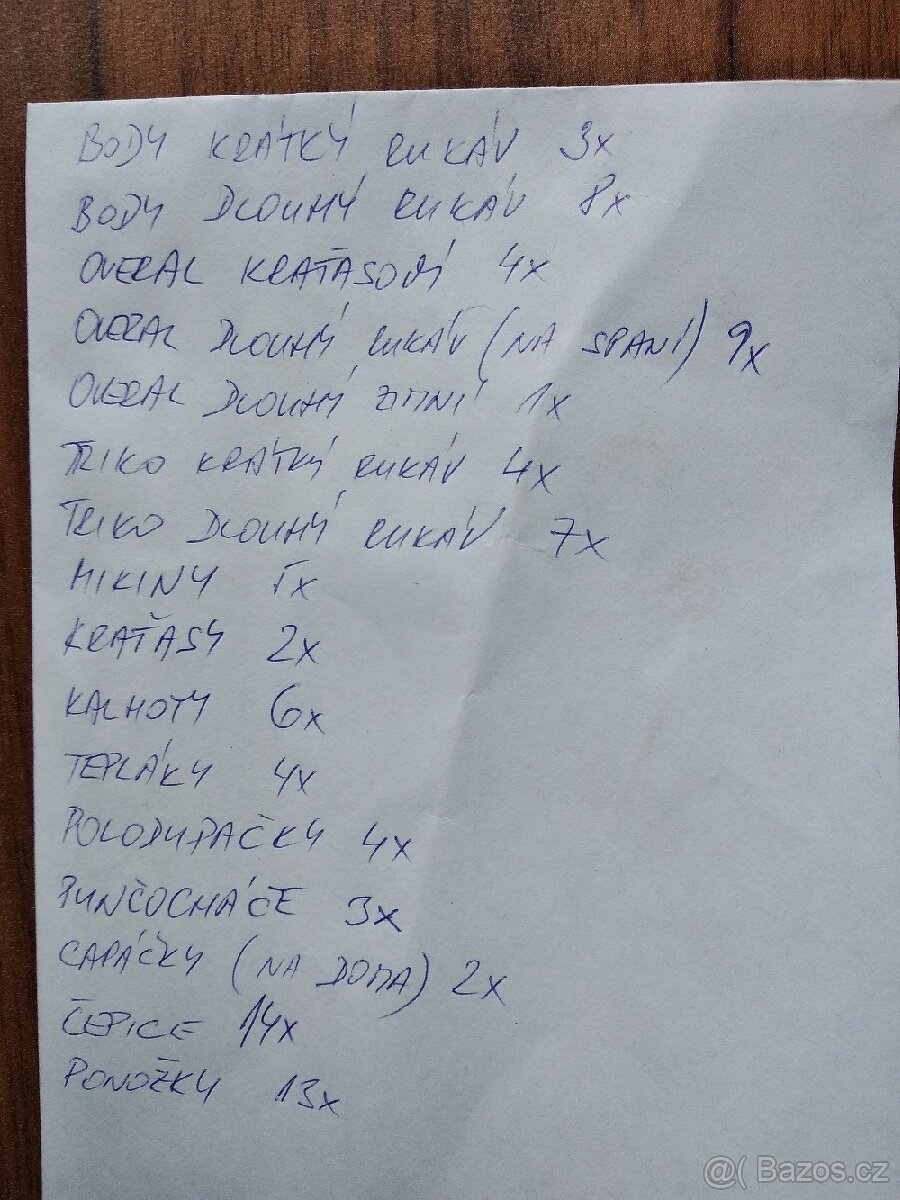 BODY KRÁTKÝ RUKÁV 3x
BODY DLOUHÝ RUKÁV 8x
OVERAL KRAŤASOVÍ 4x
OVERAL DLOUHÝ RUKÁV (NA SPANÍ) 9x
OVERAL DLOUHÝ ZIMNÍ 1x
TRIKO KRÁTKÝ RUKÁV 4x
TRIKO DLOUHÝ RUKÁV 7x
MIKINY 5x
KRAŤASY 2x
KALHOTY 6x
TEPLÁKY 4x
POLODUPAČKY 4x
PUNČOCHÁČE 3x
CAPÁČKY (NA DOMA) 2x
ČEPICE 14x
PONOŽKY 13x
@( Bazos.cz